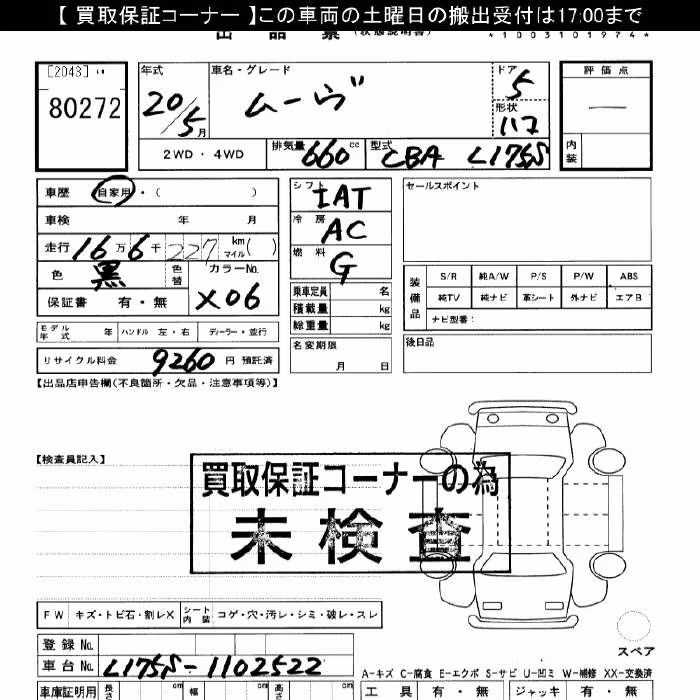 【 買取保証コーナー 】この車両の土曜日の搬出受付は17:00まで
*1003101974*
[2043]
80272
年式 20/5月
車名・グレード ムーヴ
ドア 5
形状 ハコ
評価点 —
内装
2WD・4WD
排気量 660cc
型式 CBA L175S
車歴 自家用・( )
車検 年 月
走行 16万6千227km マイル( )
色 黒 色替
カラーNo. X06
保証書 有・無
シフト IAT
冷房 AC
燃料 G
乗車定員 名
積載量 kg
総重量 kg
名変期限 月 日
セールスポイント
装備品
S/R 純A/W P/S P/W ABS
純TV 純ナビ 革シート 外ナビ エアB
ナビ型番:
後日品
モデル年式 年 ハンドル 左・右 ディーラー・並行
リサイクル料金 9260 円 預託済
【出品店申告欄(不良箇所・欠品・注意事項等)】
【検査員記入】
買取保証コーナーの為
未検査
FW キズ・トビ石・割レX シート内装 コゲ・穴・汚レ・シミ・破レ・スレ
スペア
登録 No.
車台 No. L175S-1102522
A-キズ C-腐食 E-エクボ S-サビ U-凹ミ W-補修 XX-交換済
車庫証明用 長さ cm 幅 cm 高さ cm
工具 有・無 ジャッキ 有・無